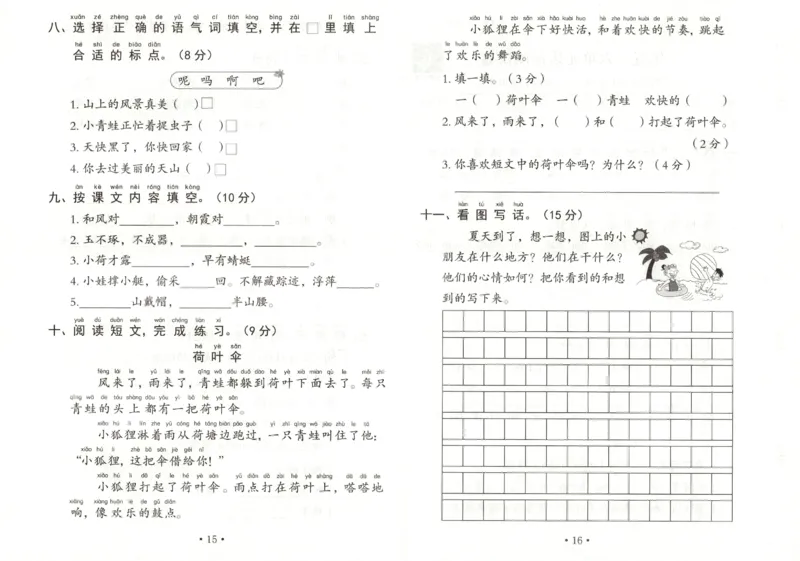 xuǎn zé zhèng què de yǔ qì cí tián kòng bìng zài lǐ tián shàng
八、选择正确的语气词填空,并在□里填上
hé shì de biāo diǎn
合适的标点。(8分)
呢 吗 啊 吧
1.山上的风景真美( )□
2.小青蛙正忙着捉虫子( )□
3.天快黑了,你快回家( )□
4.你去过美丽的天山( )□
àn kè wén nèi róng tián kòng
九、按课文内容填空。(10分)
1.和风对________,朝霞对________。
2.玉不琢,不成器,________,________。
3.小荷才露________,早有蜻蜓________。
4.小娃撑小艇,偷采_____回。不解藏踪迹,浮萍_____。
5.________山戴帽,________半山腰。
yuè dú duǎn wén wán chéng liàn xí
十、阅读短文,完成练习。(9分)
hé yè sǎn
荷叶伞
fēng lái le yǔ lái le qīng wā dōu duǒ dào hé yè xià miàn qù le měi zhī
风来了,雨来了,青蛙都躲到荷叶下面去了。每只
qīng wā de tóu shàng dōu yǒu yì bǎ hé yè sǎn
青蛙的头上都有一把荷叶伞。
xiǎo hú li lín zhe yǔ cóng hé táng biān pǎo guò yì zhī qīng wā jiào zhù le tā
小狐狸淋着雨从荷塘边跑过,一只青蛙叫住了他:
xiǎo hú li zhè bǎ sǎn jiè gěi nǐ
“小狐狸,这把伞借给你!”
xiǎo hú li dǎ qǐ le hé yè sǎn yǔ diǎn dǎ zài hé yè shàng dā dā de
小狐狸打起了荷叶伞。雨点打在荷叶上,嗒嗒地
xiǎng xiàng huān lè de gǔ diǎn
响,像欢乐的鼓点。
· 15 ·
xiǎo hú li zài sǎn xià hǎo kuài huo hè zhe huān kuài de jié zòu tiào qǐ
小狐狸在伞下好快活,和着欢快的节奏,跳起
le huān lè de wǔ dǎo
了欢乐的舞蹈。
1.填一填。(3分)
一( )荷叶伞 一( )青蛙 欢快的( )
2.风来了,雨来了,( )和( )打起了荷叶伞。
(2分)
3.你喜欢短文中的荷叶伞吗?为什么?(4分)
kàn tú xiě huà
十一、看图写话。(15分)
夏天到了,想一想,图上的小
朋友在什么地方?他们在干什么?
他们的心情如何?把你看到的和想
到的写下来。
· 16 ·